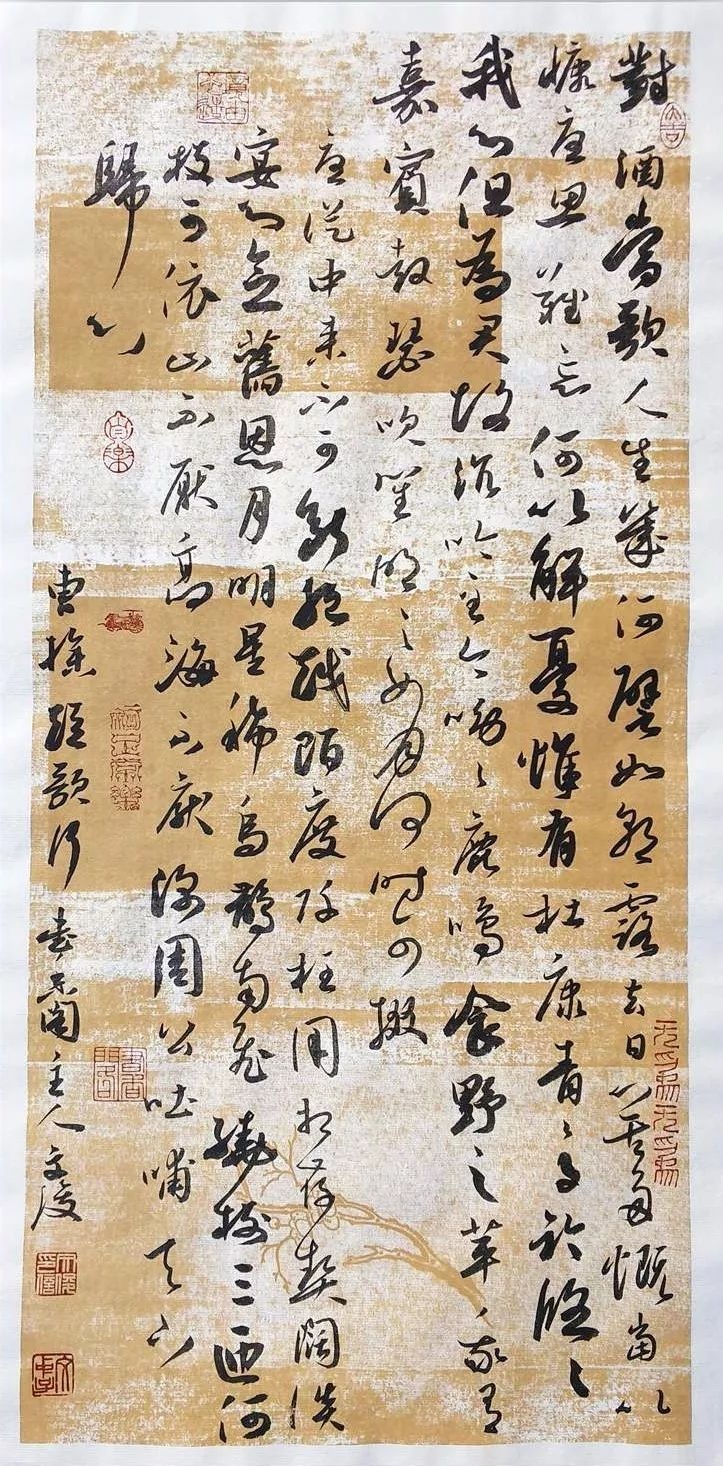 對酒當歌人生幾何譬如朝露去日苦多慨當以
慷憂思難忘何以解憂惟有杜康青〻子衿悠〻
我心但為君故沉吟至今呦〻鹿鳴食野之苹我有
嘉賓鼓瑟吹笙明〻如月何時可掇
憂從中來不可斷絕越陌度阡枉用相存契闊談
宴心念舊恩月明星稀烏鵲南飛繞樹三匝何
枝可依山不厭高海不厭深周公吐哺天下
歸心
曹操短歌行 主人文俊